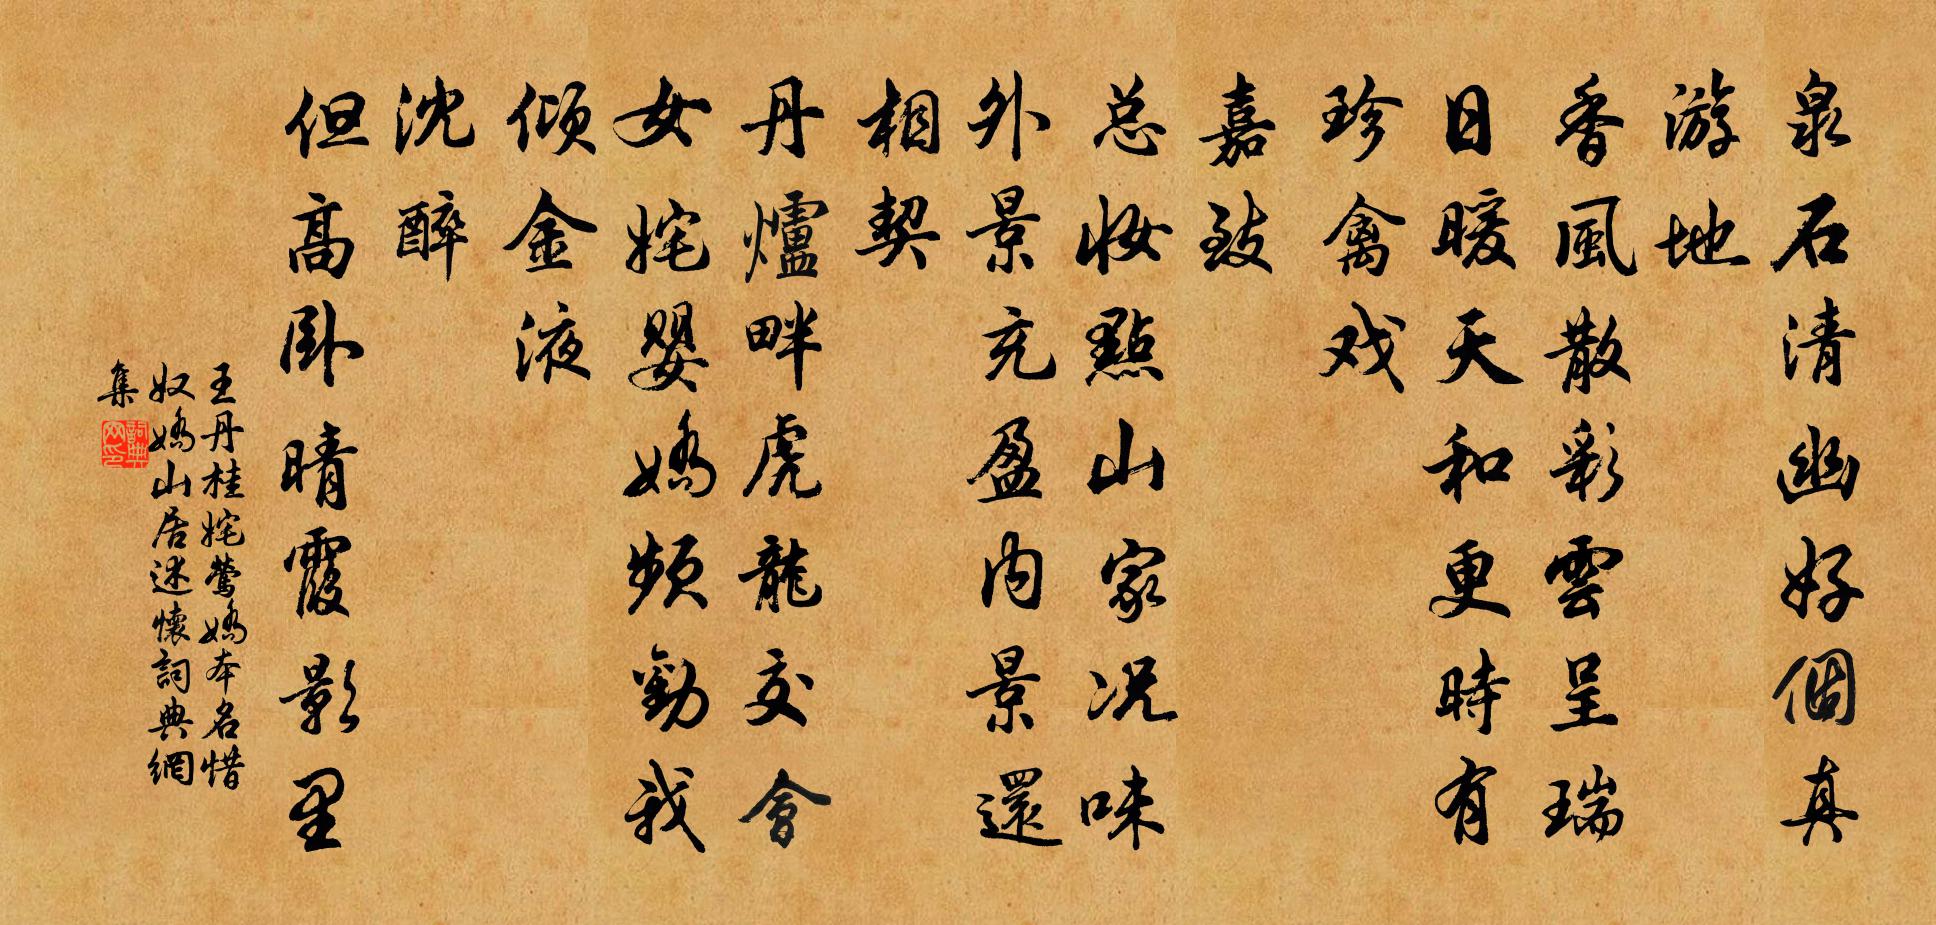 泉石清幽好個真
游地
香風散彩雲呈瑞
日暖天和更時有
珍禽戏
嘉致
总妝點山家况味
外景充盈内景還
相契
丹爐畔虎龍交會
女姹嬰嬌頻勸我
倾金液
沈醉
但高卧晴霞影里
王丹桂姹鶯嬌本名惜
奴嬌山居述懷詞典網
集
詞典
网印